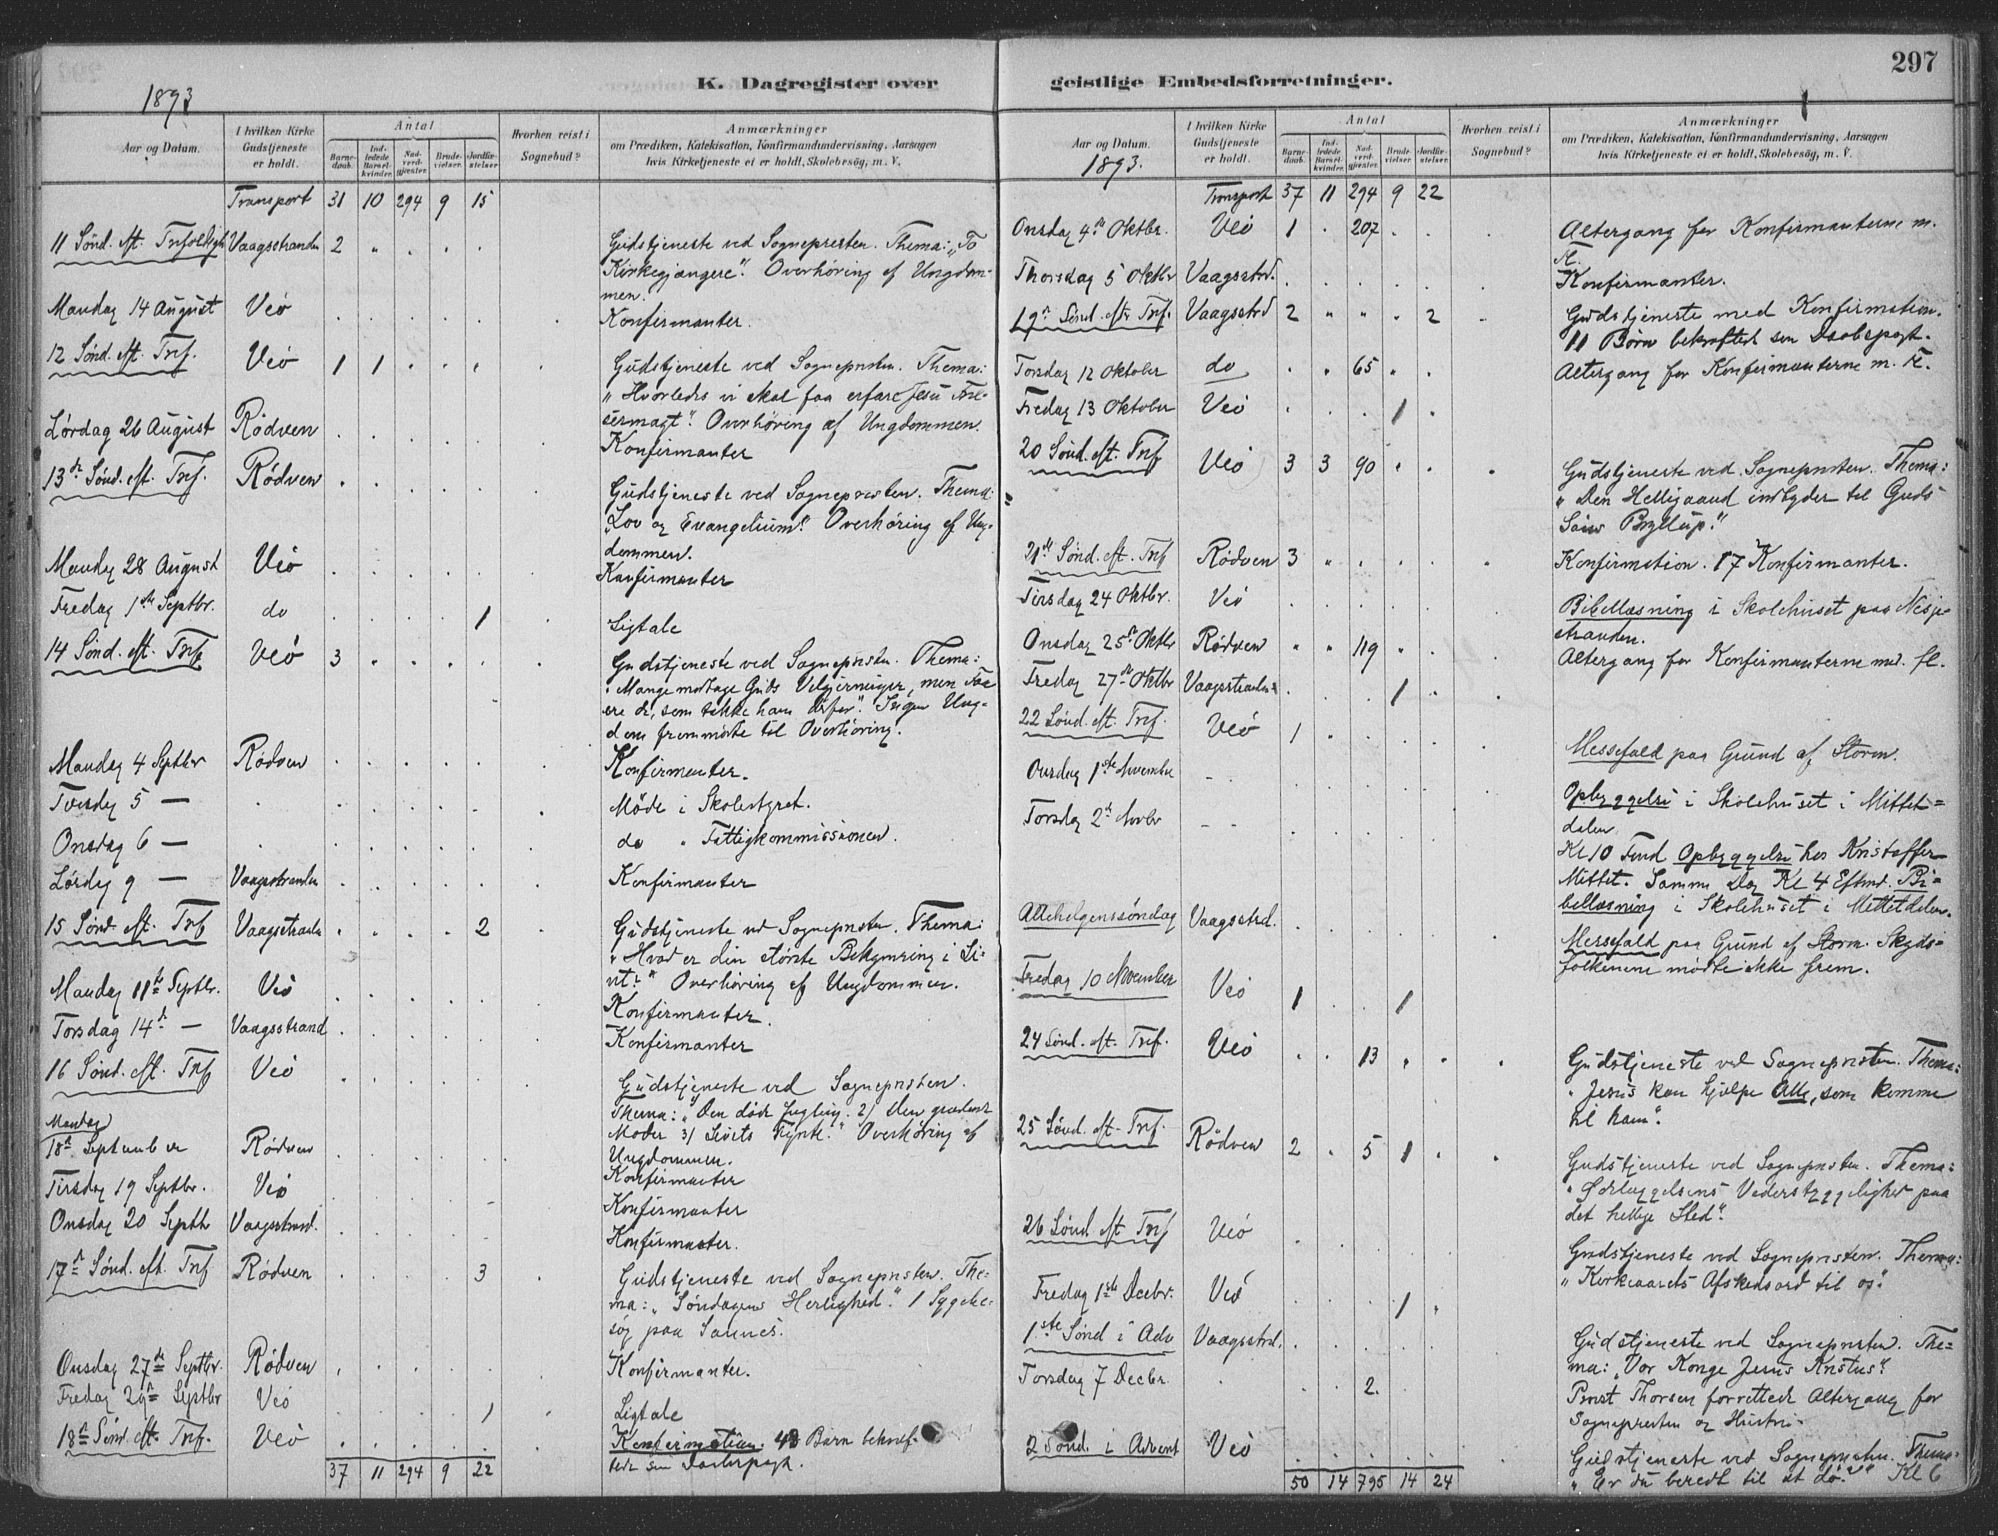 297
K. Dagregister over geistlige Embedsforretninger.
1893
Aar og Datum.
I hvilken Kirke Gudstjeneste er holdt.
Antal
Barnedaab.
Indledede Barselkvinder.
Nadverdgjester.
Brudevielser.
Jordfæstelser.
Hvorhen reist i Sognebud?
Anmærkninger
om Prædiken, Katekisation, Konfirmandundervisning, Aarsagen
hvis Kirketjeneste ei er holdt, Skolebesög, m. V.
Transport 31 10 294 9 15
11 Sönd. eft. Trefoldigh Vaagstranden 2 " Gudstjeneste ved Sognepresten. Thema: "To
Kirkegjængere". Overhöring af Ungdom-
men.
Mandag 14 August Veö Konfirmanter.
12 Sönd. eft. Tref. Veö 1 1 Gudstjeneste ved Sognepresten. Thema:
"Hvorledes vi skal faa erfare Jesu Frel-
sermagt". Overhöring af Ungdommen.
Lördag 26 August Rödven Konfirmanter
13de Sönd. eft. Tref. Rödven Gudstjeneste ved Sognepresten. Thema:
"Lov og Evangelium". Overhöring af Ung-
dommen.
Mandag 28 August Veö Konfirmanter
Fredag 1ste Septbr. do 1 Ligtale
14 Sönd. eft. Tref. Veö 3 Gudstjeneste ved Sognepresten. Thema:
"Mange modtage Guds Velgjerninger, men Faa
ere de, som takke ham derfor". Ingen Ung-
dom fremmödte til Overhöring.
Mandag 4 Septbr Rödven Konfirmanter.
Tirsdag 5 — Möde i Skolestyret.
Onsdag 6 — do " Fattigkommissionen.
Lördag 9 — Vaagstranden Konfirmanter
15 Sönd. eft. Tref Vaagstranden 2 Gudstjeneste ved Sognepresten. Thema:
"Hvad er din störste Bekymring i Li-
vet?" Overhöring af Ungdommen.
Mandag 11te Septbr. Veö Konfirmanter.
Torsdag 14de — Vaagsstrand Konfirmanter
16 Sönd. eft. Tref Veö Gudstjeneste ved Sognepresten.
Thema: "1/ Den döde Yngling. 2/ Den grædende
Moder 3/ Livets Fyrste." Overhöring af
Ungdommen.
Mandag
18de September Rödven Konfirmanter
Tirsdag 19 Septbr. Veö Konfirmanter
Onsdag 20 Septbr Vaagsstrand. Konfirmanter.
17de Sönd. eft. Tref Rödven 3 Gudstjeneste ved Sognepresten. The-
ma: "Söndagens Herlighed." 1 Sygebe-
sög paa Sannes.
Onsdag 27de Septbr. Rödven Konfirmanter.
Fredag 29de Septbr Veö 1 Ligtale
18de Sönd. eft. Tref. Veö Konfirmation. 48 Börn bekræf-
tede sin Daabspagt.
37 11 294 9 22
Aar og Datum.
1893.
I hvilken Kirke Gudstjeneste er holdt.
Antal
Barnedaab.
Indledede Barselkvinder.
Nadverdgjester.
Brudevielser.
Jordfæstelser.
Hvorhen reist i Sognebud?
Anmærkninger
om Prædiken, Katekisation, Konfirmandundervisning, Aarsagen
hvis Kirketjeneste ei er holdt, Skolebesög, m. V.
Transport 37 11 294 9 22
Onsdag 4de Oktbr. Veö 1 207 Altergang for Konfirmanterne m.
Fl.
Thorsdag 5 Oktbr Vaagsstrd. Konfirmanter.
19de Sönd. eft. Tref. Vaagsstrd 2 " " 2 Gudstjeneste med Konfirmation.
11 Börn bekræfted sin Daabspagt.
Torsdag 12 Oktober do 65 Altergang for Konfirmanterne m. Fl.
Fredag 13 Oktober Veö 1
20 Sönd. eft. Tref Veö 3 3 90 Gudstjeneste ved Sognepresten. Thema:
"Den Helligaand indbyder til Guds
Söns Bryllup."
21de Sönd. eft. Tref Rödven 3 Konfirmation. 17 Konfirmanter.
Tirsdag 24 Oktbr. Veö Bibellæsning i Skolehuset paa Nesje-
stranden.
Onsdag 25de Oktbr Rödven 119 Altergang for Konfirmanterne md. fl.
Fredag 27de Oktbr Vaagsstranden 1
22 Sönd. eft. Tref. Veö 1 Messefald paa Grund af Storm.
Onsdag 1ste November - - Opbyggelse i Skolehuset i Mittet=
dalen.
Torsdag 2de Novbr - - Kl 10 Fmd Opbyggelse hos Kristoffer
Mittet. Samme Dag Kl 4 Eftmd. Bi=
bellæsning i Skolehuset i Mittetdalen.
Allehelgenssöndag Vaagsstrd. Messefald paa Grund af Storm. Skyds-
folkene mödte ikke frem.
Fredag 10 November Veö 1 1
24 Sönd. eft. Tref. Veö 13 Gudstjeneste ved Sognepresten. Thema:
"Jesus kan hjælpe Alle, som komme
til ham".
25 Sönd. eft. Tref. Rödven 2 5 1 Gudstjeneste ved Sognepresten. Thema:
"Ödelæggelsens Vederstyggelighed paa
det hellige Sted".
26 Sönd. eft Tref Veö Gudstjeneste ved Sognepresten. Thema:
"Kirkeaarets Afskedsord til os".
Fredag 1ste Decbr. Veö 1
1ste Sönd i Adv Vaagsstrd. Gudstjeneste ved Sognepresten. The-
ma: "Vor Konge Jesus Kristus".
Torsdag 7 Decbr. 2. Provst Thorsen forrettede Altergang for
Sognepresten og Hustru.
2 Sönd. i Advent Veö Gudstjeneste ved Sognepresten. Thema:
"Er du beredt til at dö?" Kl 6
50 14 795 14 24